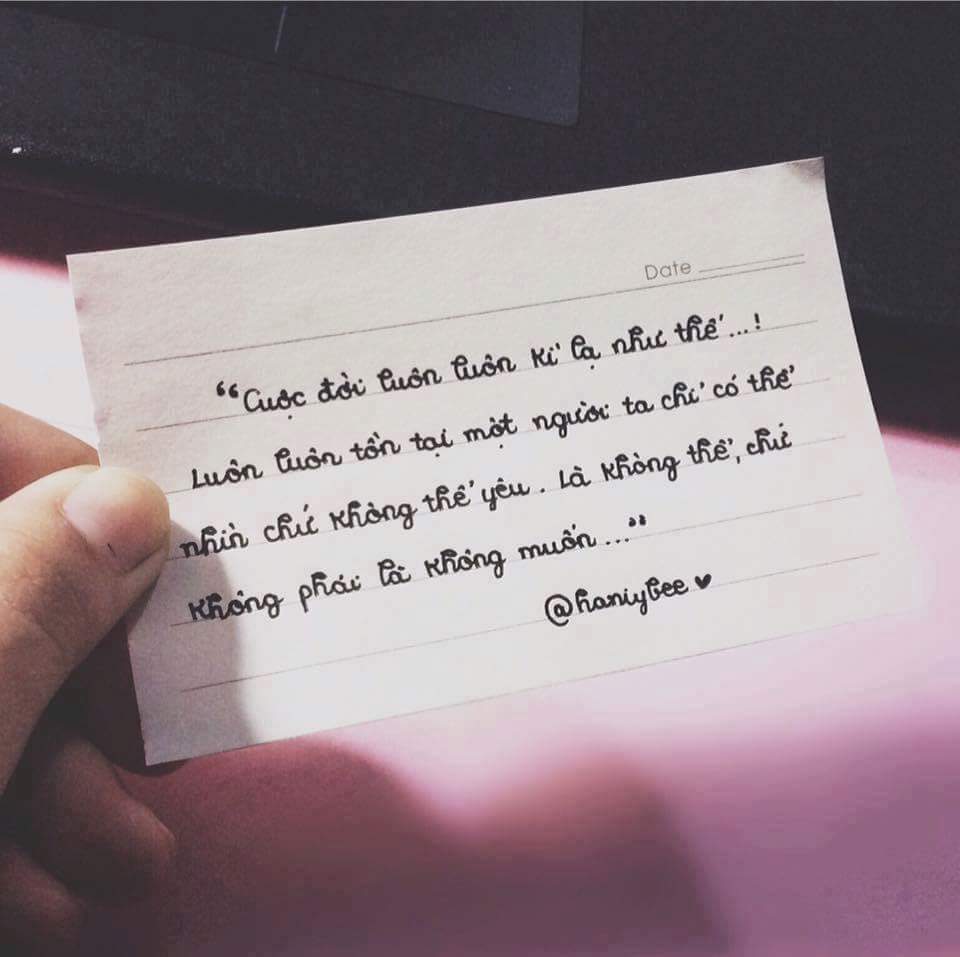 Date
“Cuộc đời luôn luôn kì lạ như thế...!
Luôn luôn tồn tại một người ta chỉ có thể
nhìn chứ không thể yêu. Là không thể, chứ
không phải là không muốn...”
@haniybee ♥